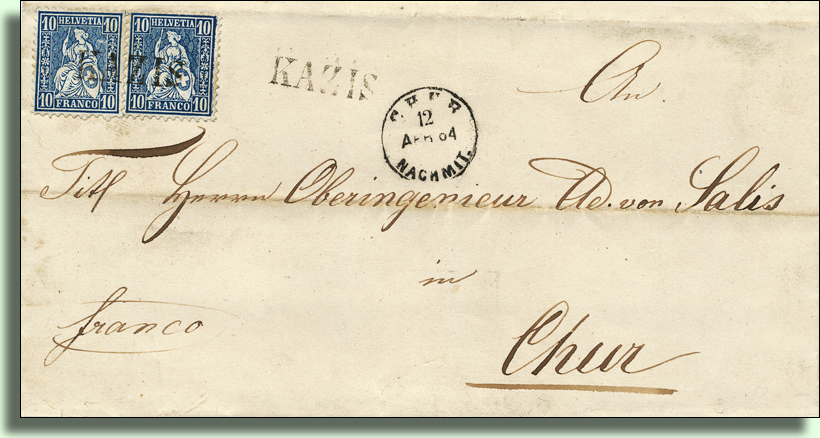 10 HELVETIA 10
10 FRANCO 10
10 HELVETIA 10
10 FRANCO 10
KAZIS
KAZIS
CHUR
12
APR 64
NACHMIT.
An.
Titl Herrn Oberingenieur Ad. von Salis
in
franco
Chur